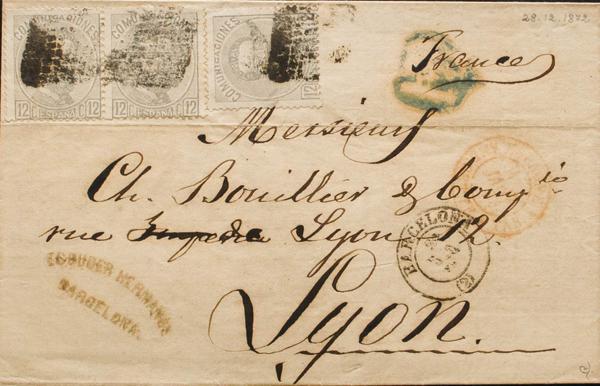 28.12.1872
COMUNICACIONES COMUNICACIONES COMUNICACIONES
12 CS ESPAÑA CS 12 12 CS ESPAÑA CS 12 12
France
Messieurs
Ch. Bouillier & Comp io
rue de Lyon 12.
Lyon.
BARCELONA
(2)
HERMANOS
BARCELONA.